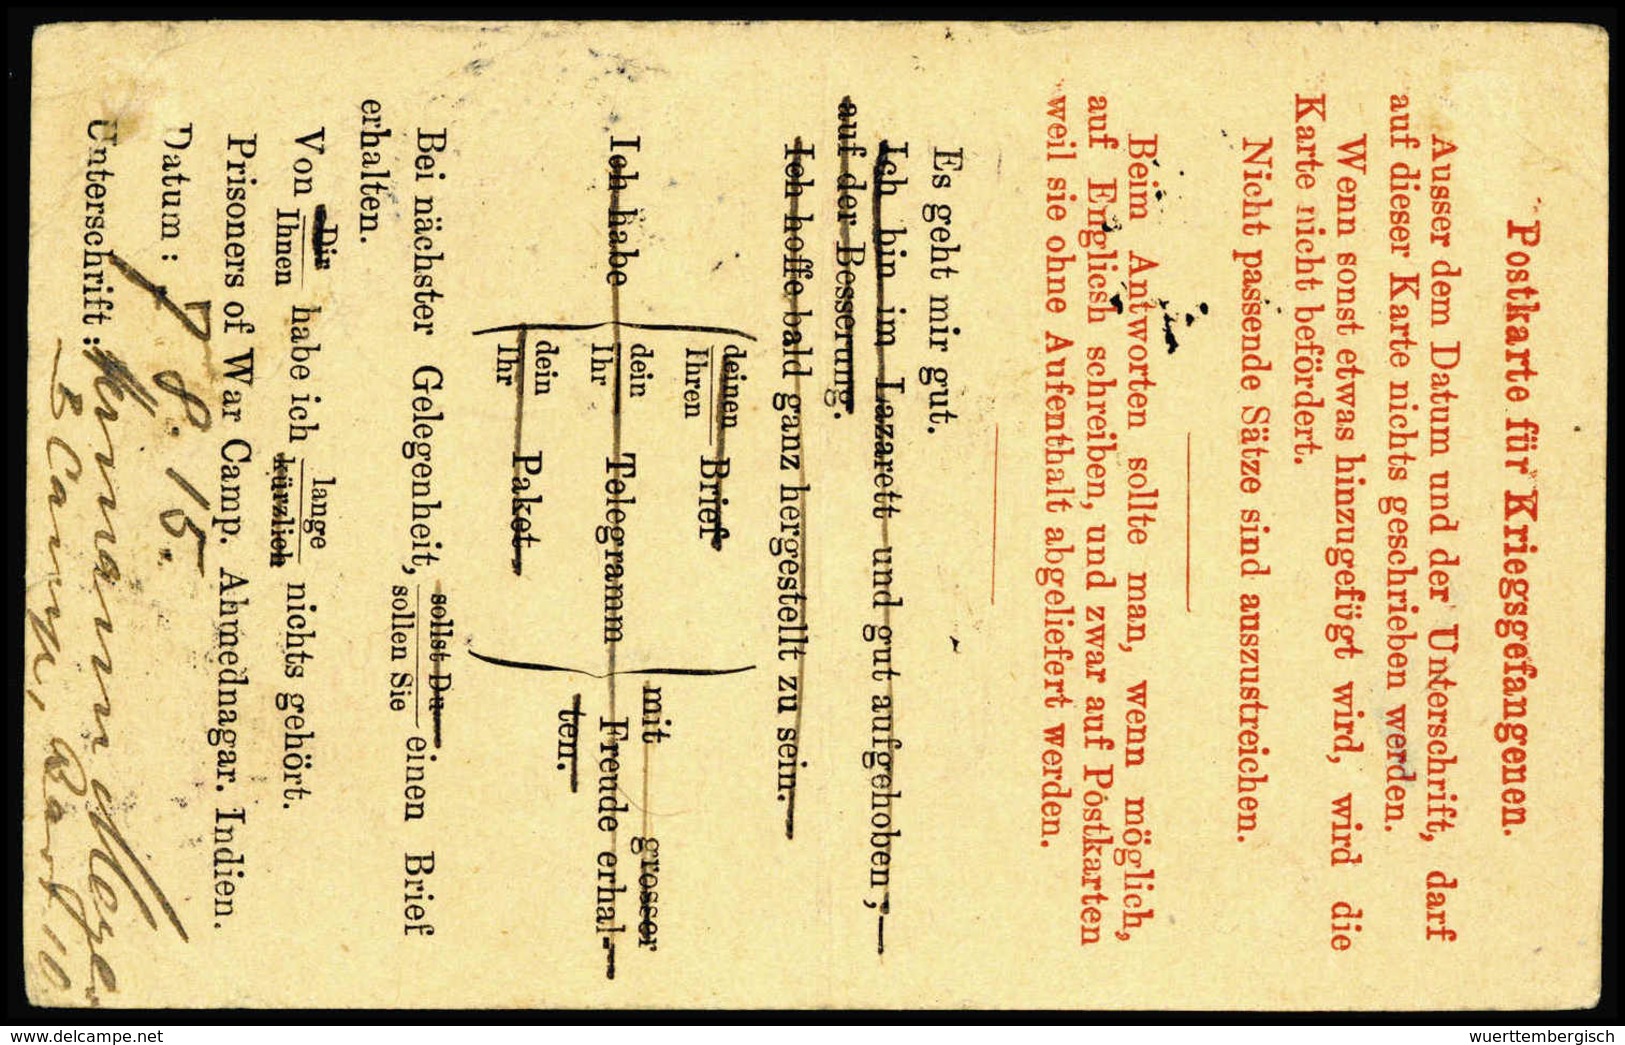 Postkarte für Kriegsgefangenen.
Ausser dem Datum und der Unterschrift, darf
auf dieser Karte nichts geschrieben werden.
Wenn sonst etwas hinzugefügt wird, wird die
Karte nicht befördert.
Nicht passende Sätze sind auszustreichen.
Beim Antworten sollte man, wenn möglich,
auf Englicsh schreiben, und zwar auf Postkarten
weil sie ohne Aufenthalt abgeliefert werden.
Es geht mir gut.
Ich bin im Lazarett und gut aufgehoben;
auf der Besserung.
Ich hoffe bald ganz hergestellt zu sein.
deinen
Ihren Brief
Ich habe dein
Ihr Telegramm mit grosser
Freude erhal-
ten.
dein
Ihr Paket
Bei nächster Gelegenheit, sollst Du
sollen Sie einen Brief
erhalten.
Von Dir
Ihnen habe ich lange
kürzlich nichts gehört.
Prisoners of War Camp. Ahmednagar. Indien.
Datum: 7 8. 15.
Unterschrift: Hermann
B Camp, 10
delcampe.net
wuerttembergisch